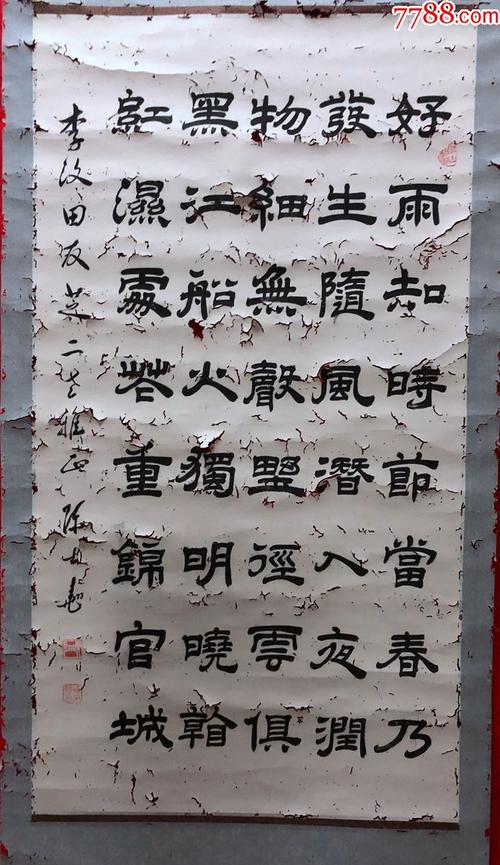 7788.com
好雨知時節當春乃
發生隨風潛入夜潤
物細無聲野徑雲俱
黑江船火獨明曉看
紅濕處花重錦官城
李汶田友芝二老雅正